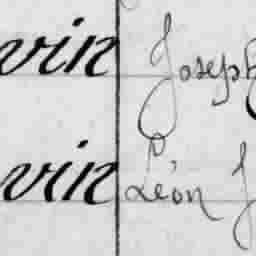 vin Joseph
vin Léon J